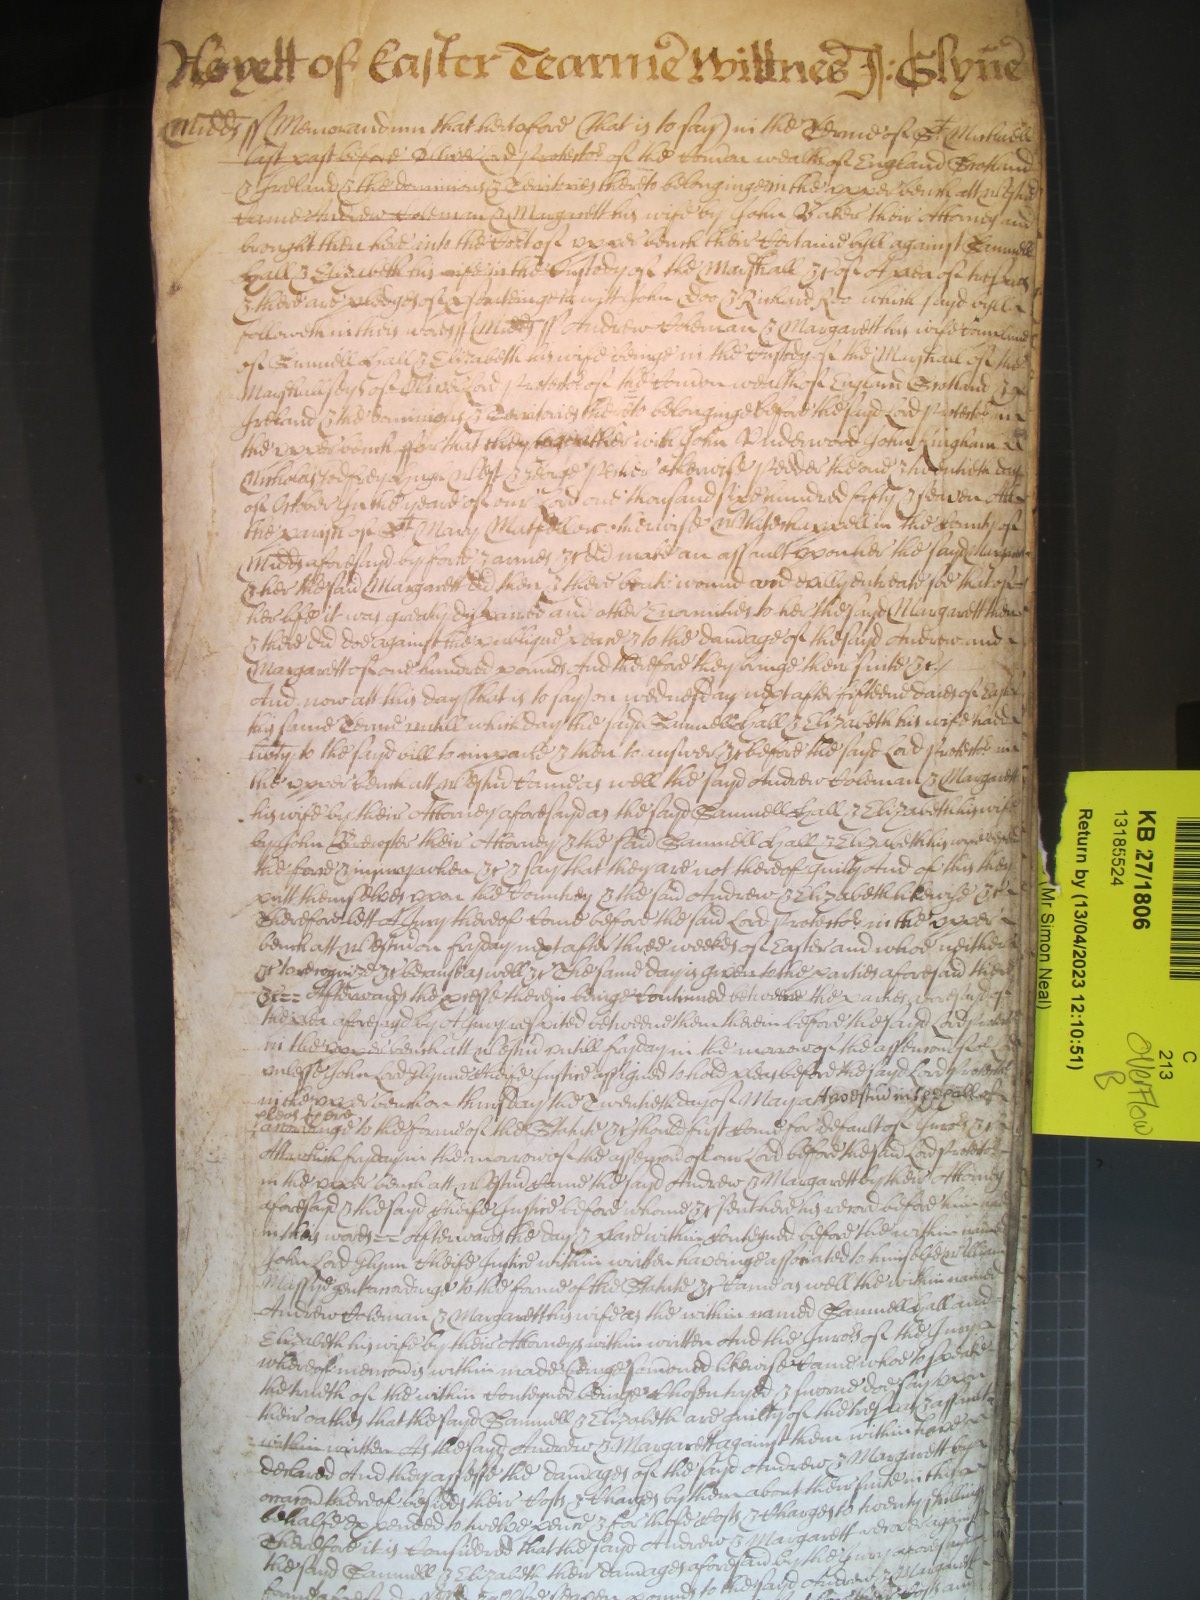 As yett of Easter Tearme Wittnes J: Glynne
Midds ss Memorandum that heretofore (that is to say) in the Terme of St Michaell
last past before Oliver Lord Protector of the Common wealth of England Scotland
& Ireland & the dominions & Territories thereto belonginge in the upper bench att Westmr
came Andrew Coleman & Margarett his wife by John Baker their Attorney and
brought then here into the Cort of upper bench their Certaine byll against Samuell
Hall & Elizabeth his wife in the Custody of the Marshall &c of A plea of trespas
& there are pledges of prosecutinge to witt John Doo & Richard Roo which sayd byll
followeth in theis words ss Midds ss Andrew Coleman & Margarett his wife complaine
of Samuell Hall & Elizabeth his wife beinge in the Custody of the Marshall of the
Marshallsey of Oliver Lord Protector of the Common wealth of England Scotland &
Ireland & the dominions & Territories thereto belonginge before the sayd Lord Protector in
the upper bench ffor that they togeather with John Underwood John Kingham
Nicholas Godfrey West & George Pether otherwise Pedder the one & twentieth day
of October in the yeare of our Lord one thousand sixe hundred fifty & seaven Att
the parish of St Mary Matfellon otherwise Whitechappell in the County of
Midds aforesayd by force & armes &c did make an assault upon her the sayd Margarett
& her the said Margarett did then & there beate wound and evilly entreate soe that of
her life it was greatly dispaired and other Enormities to her the sayd Margarett then
& there did doe against the publique peace & to the damage of the sayd Andrew and
Margarett of one hundred pounds And therefore they bringe their suite &c
And now att this day (that is to say) on wednesday next after fifteene daies of Easter
this same Terme untill which day the sayd Samuell Hall & Elizabeth his wife had
liberty to the sayd bill to imparle & then to answer &c before the sayd Lord Protector in
the upper bench att Westmr came as well the sayd Andrew Coleman & Margarett
his wife by their Attorney aforesayd as the sayd Samuell Hall & Elizabeth his wife
by John Brewster their Attorney & the said Samuell Hall & Elizabeth his wife
the force & injury when &c & say that they are not thereof guilty And of this they
putt themselves upon the Country & the said Andrew & Elizabeth likewise &c
Therefore lett a Jury thereof come before the said Lord Protector in the upper
bench att Westmr on fryday next after three weekes of Easter and whoe neither
&c to recognize &c because as well &c The same day is given to the parties aforesaid there
&c == Afterwards the processe therein beinge continued betweene the parties aforesaid of
the plea aforesayd by A Jury respited betweene them therein before the sayd Lord Protector
in the upper bench att Westmr untill fryday in the morrow of the assension of
unlesse John Lord Glynne Cheife Justice assigned to hold pleas before the sayd Lord Protector
in the upper bench on thursday the Twentieth day of May att Westmr
pleas before
accordinge to the forme of the Statute &c should first come for default of Jurors &c
Att which fryday in the morrow of the assension of our Lord before the said Lord Protector
in the upper bench att Westmr came the sayd Andrew & Margarett by their Attorney
aforesaid & the sayd Cheife Justice before whome &c sent here his record before him had
in theis words == Afterwards the day & place within conteyned before the within named
John Lord Glynn Cheife Justice within written haveinge associated to himselfe William
Massye gent accordinge to the forme of the Statute &c Came as well the within named
Andrew Coleman & Margarett his wife as the within named Samuell Hall and
Elizabeth his wife by their Attorneys within written And the Jurors of the Jury
whereof mencion is within made beinge somoned likewise Came whoe to speake
the truth of the within conteyned beinge Chosen tryed & sworne doe say upon
their oathes that the sayd Samuell & Elizabeth are guilty of the trespas & assault
within written As the sayd Andrew & Margarett against them within have
declared And they assesse the damages of the sayd Andrew & Margarett by
occasion thereof besides their Costs & Charges by them about their suite in this
behalfe expended to twelve pence & for those Costs & Charges to twenty shillings
Therefore it is Considered that the sayd Andrew & Margarett recover against
the said Samuell & Elizabeth their damages aforesaid by the Jury aforesaid
pounds to the sayd Andrew & Margarett
KB 27/1806
13185524
Return by (13/04/2023 12:10:51)
(Mr Simon Neal)
C
213
Overflow
B